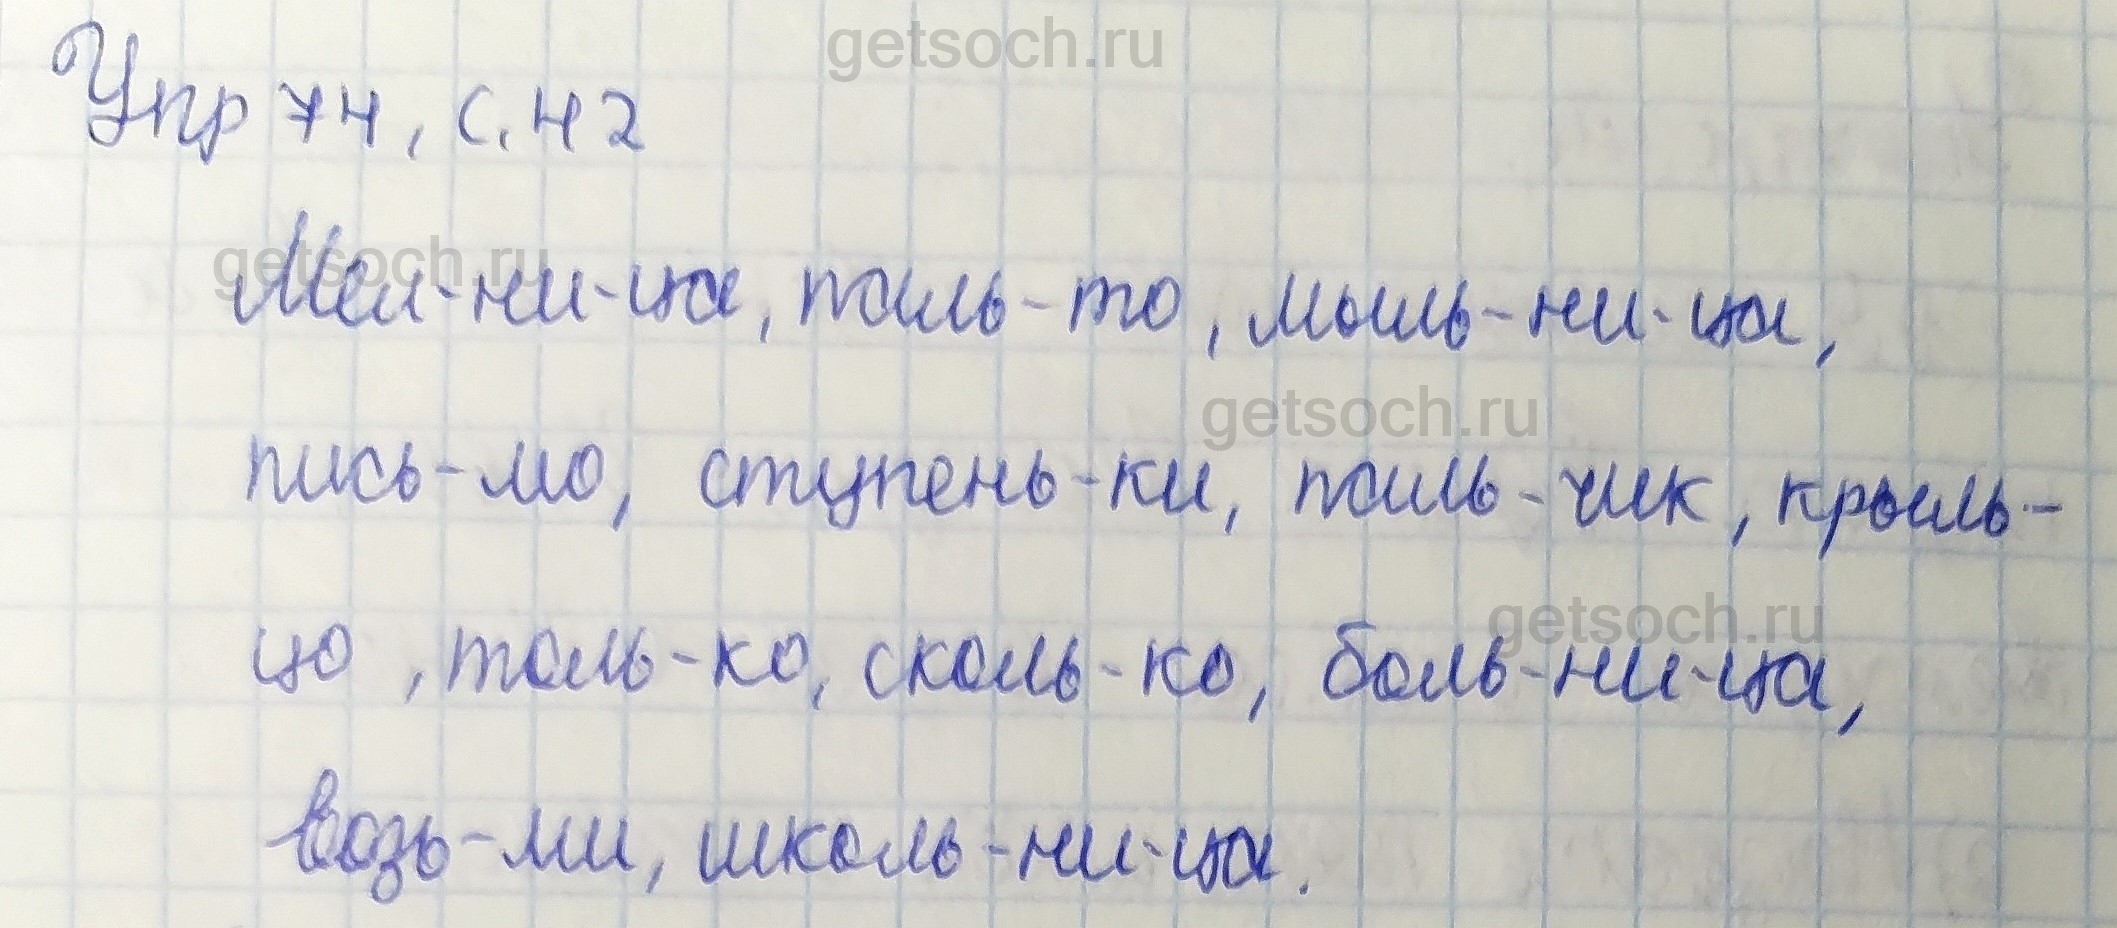 getsoch.ru
Упр 74, с. 42
getsoch.ru
Мел-ни-ца, паль-то, мыль-ни-ца,
getsoch.ru
пись-мо, ступень-ки, паль-чик, крыль-
getsoch.ru
цо, толь-ко, сколь-ко, боль-ни-ца,
возь-ми, школь-ни-ца.